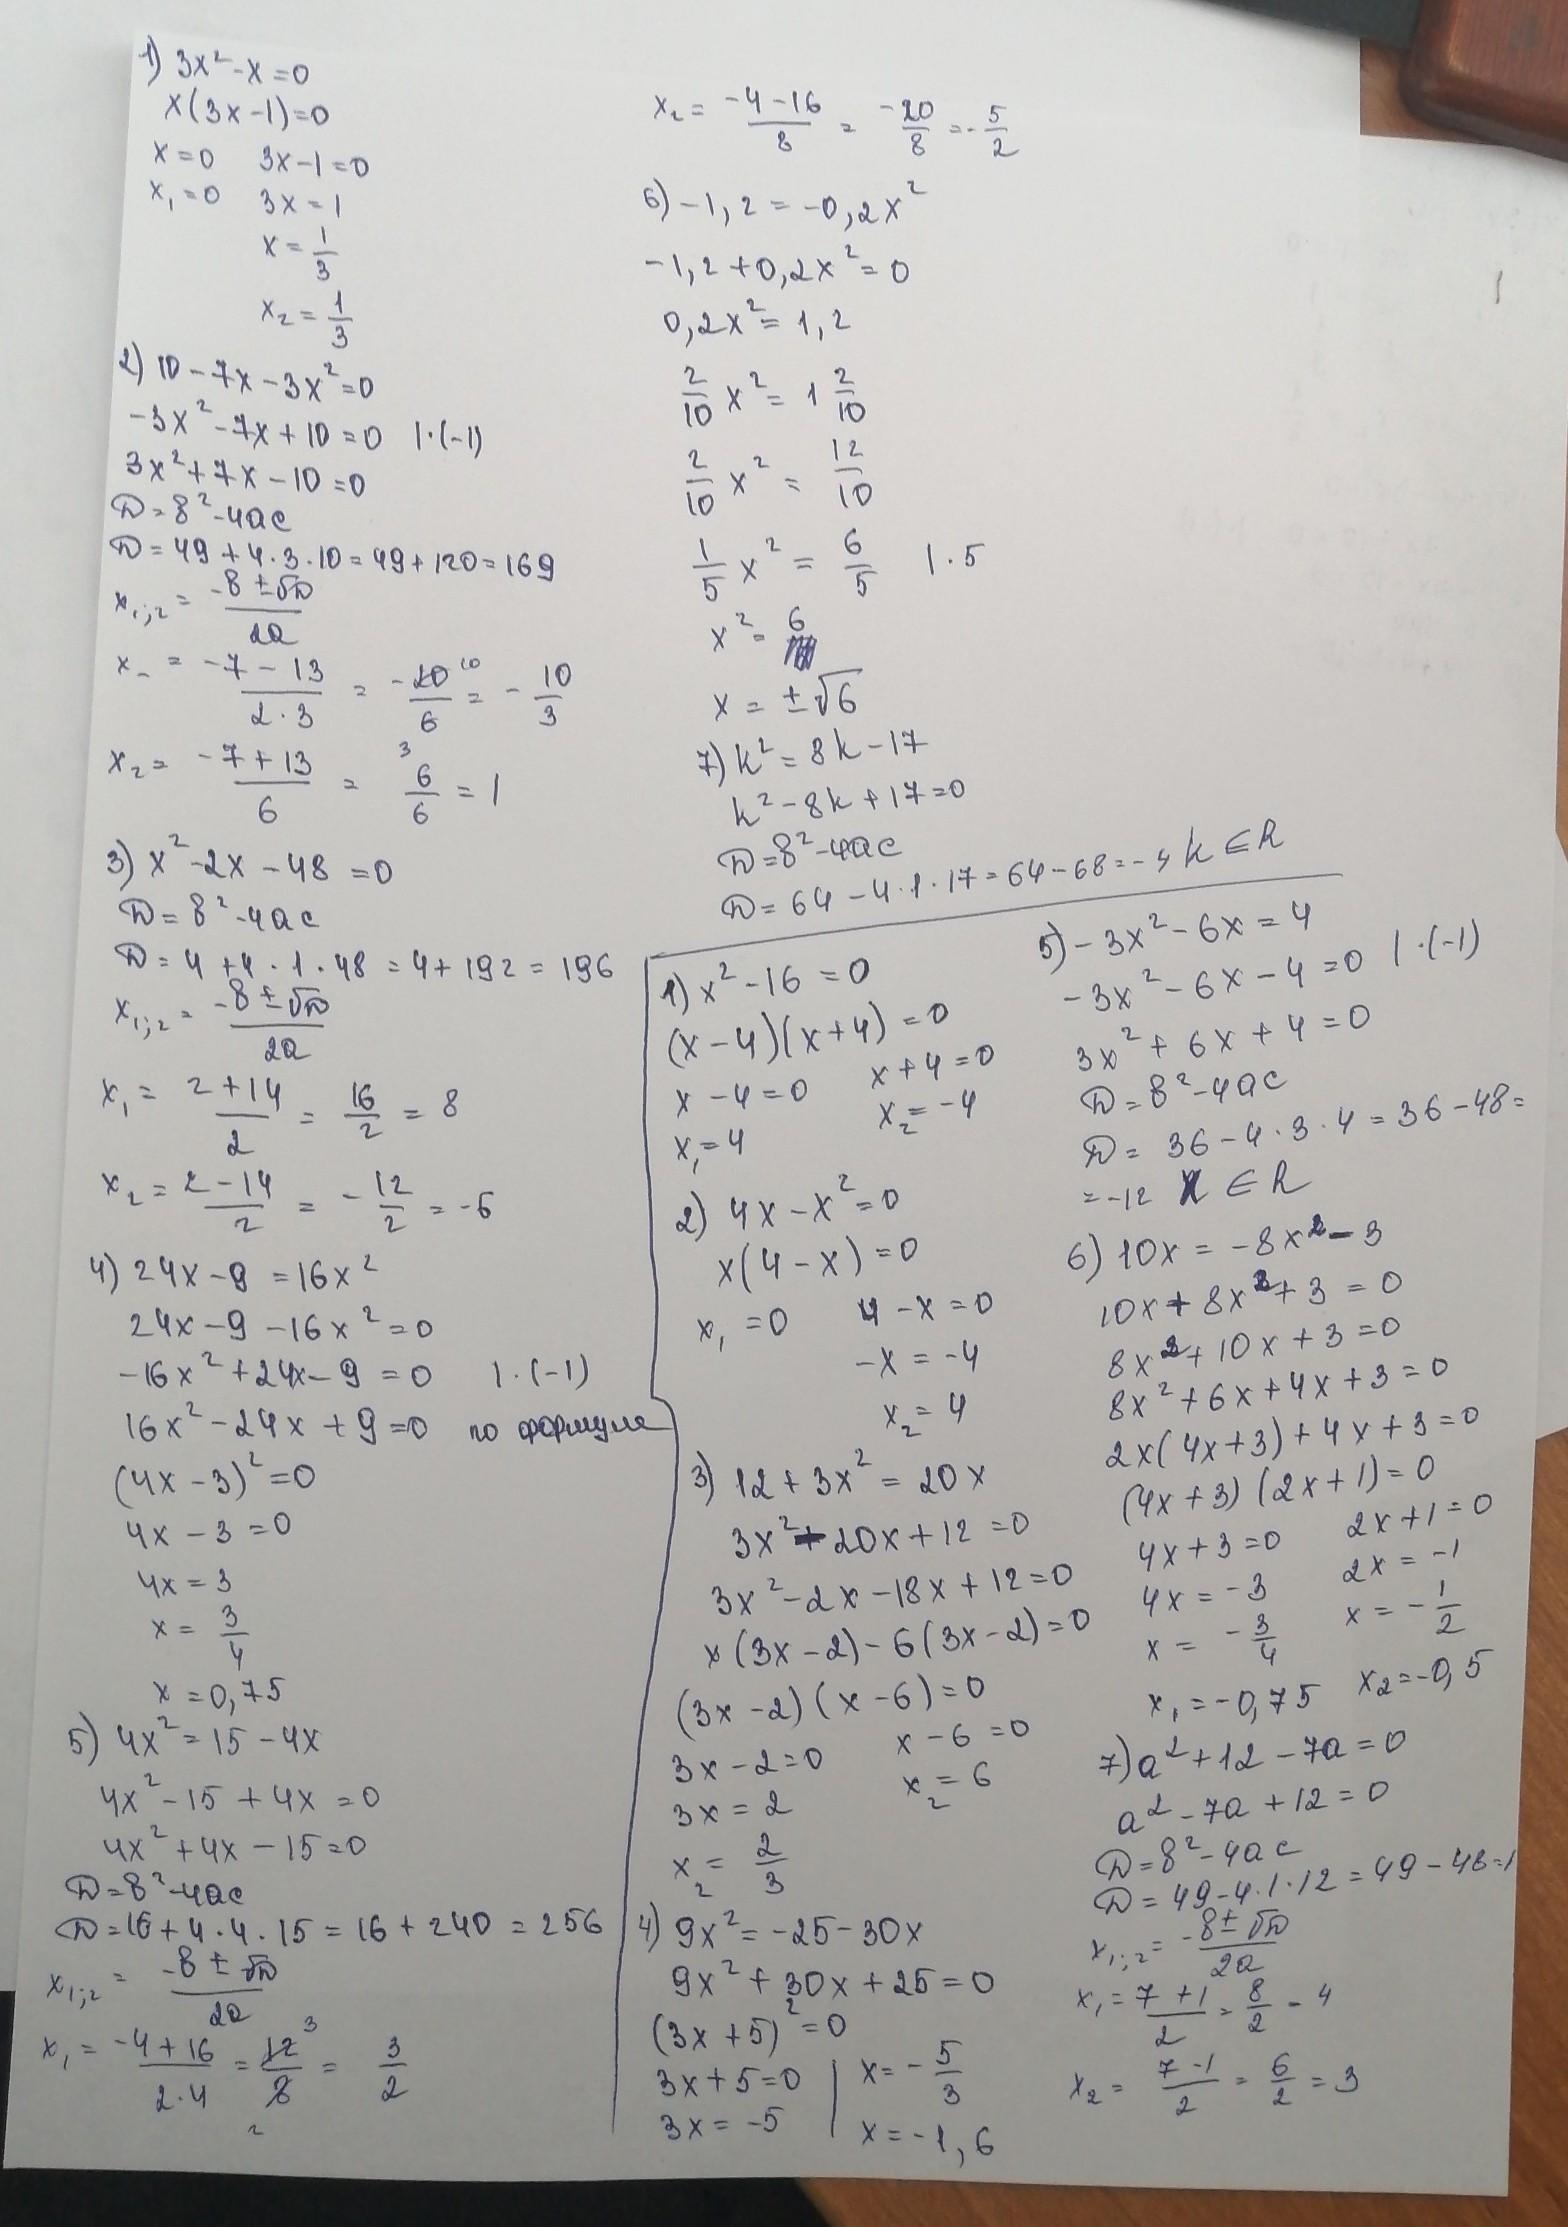 1) 3x² - x = 0
x(3x - 1) = 0
x = 0   3x - 1 = 0
x₁ = 0   3x = 1
x = 1/3
x₂ = 1/3
2) 10 - 7x - 3x² = 0
-3x² - 7x + 10 = 0 | · (-1)
3x² + 7x - 10 = 0
D = в² - 4ac
D = 49 + 4 · 3 · 10 = 49 + 120 = 169
x₁;₂ = (-в ± √D)/2a
x₋ = (-7 - 13)/(2 · 3) = -20/6 = -10/3
x₂ = (-7 + 13)/6 = 6/6 = 1
3) x² - 2x - 48 = 0
D = в² - 4ac
D = 4 + 4 · 1 · 48 = 4 + 192 = 196
x₁;₂ = (-в ± √D)/2a
x₁ = (2 + 14)/2 = 16/2 = 8
x₂ = (2 - 14)/2 = -12/2 = -6
4) 24x - 9 = 16x²
24x - 9 - 16x² = 0
-16x² + 24x - 9 = 0 | · (-1)
16x² - 24x + 9 = 0 по формуле
(4x - 3)² = 0
4x - 3 = 0
4x = 3
x = 3/4
x = 0,75
5) 4x² = 15 - 4x
4x² - 15 + 4x = 0
4x² + 4x - 15 = 0
D = в² - 4ac
D = 16 + 4 · 4 · 15 = 16 + 240 = 256
x₁;₂ = (-в ± √D)/2a
x₁ = (-4 + 16)/(2 · 4) = 12/8 = 3/2
x₂ = (-4 - 16)/8 = -20/8 = -5/2
6) -1,2 = -0,2x²
-1,2 + 0,2x² = 0
0,2x² = 1,2
2/10 x² = 1 2/10
2/10 x² = 12/10
1/5 x² = 6/5 | · 5
x² = 6
x = ±√6
7) k² = 8k - 17
k² - 8k + 17 = 0
D = в² - 4ac
D = 64 - 4 · 1 · 17 = 64 - 68 = -4 k ∈ R
1) x² - 16 = 0
(x - 4)(x + 4) = 0
x - 4 = 0   x + 4 = 0
x₁ = 4   x₂ = -4
2) 4x - x² = 0
x(4 - x) = 0
x₁ = 0   4 - x = 0
-x = -4
x₂ = 4
3) 12 + 3x² = 20x
3x² - 20x + 12 = 0
3x² - 2x - 18x + 12 = 0
x(3x - 2) - 6(3x - 2) = 0
(3x - 2)(x - 6) = 0
3x - 2 = 0   x - 6 = 0
3x = 2   x₂ = 6
x₂ = 2/3
4) 9x² = -25 - 30x
9x² + 30x + 25 = 0
(3x + 5)² = 0
3x + 5 = 0 | x = -5/3
3x = -5 | x = -1,6
5) -3x² - 6x = 4
-3x² - 6x - 4 = 0 | · (-1)
3x² + 6x + 4 = 0
D = в² - 4ac
D = 36 - 4 · 3 · 4 = 36 - 48 =
= -12 x ∈ R
6) 10x = -8x² - 3
10x + 8x² + 3 = 0
8x² + 10x + 3 = 0
8x² + 6x + 4x + 3 = 0
2x(4x + 3) + 4x + 3 = 0
(4x + 3)(2x + 1) = 0
4x + 3 = 0   2x + 1 = 0
4x = -3   2x = -1
x = -3/4   x = -1/2
x₁ = -0,75   x₂ = -0,5
7) a² + 12 - 7a = 0
a² - 7a + 12 = 0
D = в² - 4ac
D = 49 - 4 · 1 · 12 = 49 - 48 = 1
x₁;₂ = (-в ± √D)/2a
x₁ = (7 + 1)/2 = 8/2 - 4
x₂ = (7 - 1)/2 = 6/2 = 3